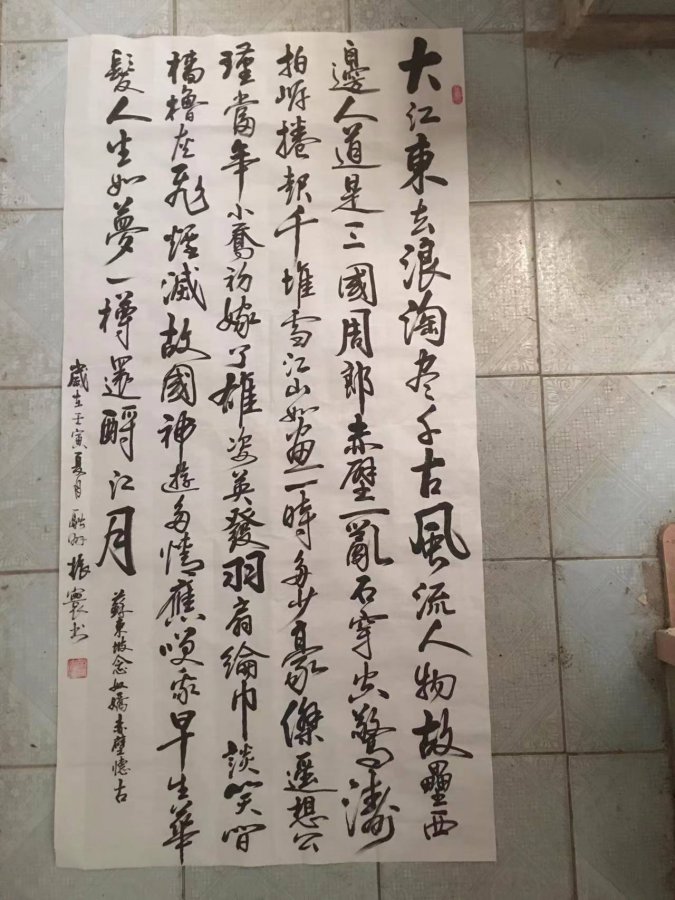 大江東去浪淘尽千古風流人物故壘西
邊人道是三國周郎赤壁亂石穿空驚濤
拍岸捲起千堆雪江山如畫一時多少豪傑遥想公
瑾當年小喬初嫁了雄姿英發羽扇綸巾談笑間
檣櫓灰飛煙滅故國神遊多情應笑我早生華
髮人生如夢一樽還酹江月
蘇東坡念奴嬌赤壁懷古
歲在壬寅夏月振寰书